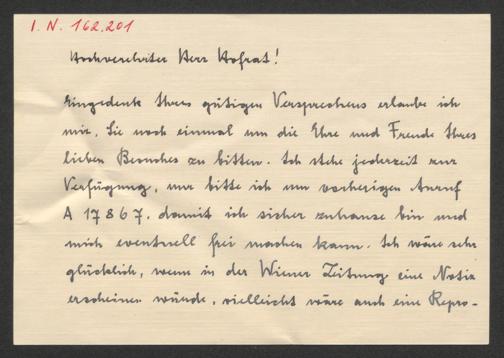 I. N. 162.201
Hochverehrter Herr Hofrat!
Eingedenk Ihres gütigen Versprechens erlaube ich
mir, Sie noch einmal um die Ehre und Freude Ihres
lieben Besuches zu bitten. Ich stehe jederzeit zur
Verfügung, nur bitte ich um vorherigen Anruf
A 17867, damit ich sicher zuhause bin und
mich eventuell frei machen kann. Ich wäre sehr
glücklich, wenn in der Wiener Zeitung eine Notiz
erscheinen würde, vielleicht wäre auch eine Repro-